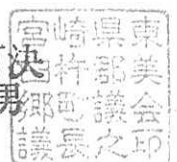 決
男
宮崎県東
臼杵郡美
郷町議会
議長之印